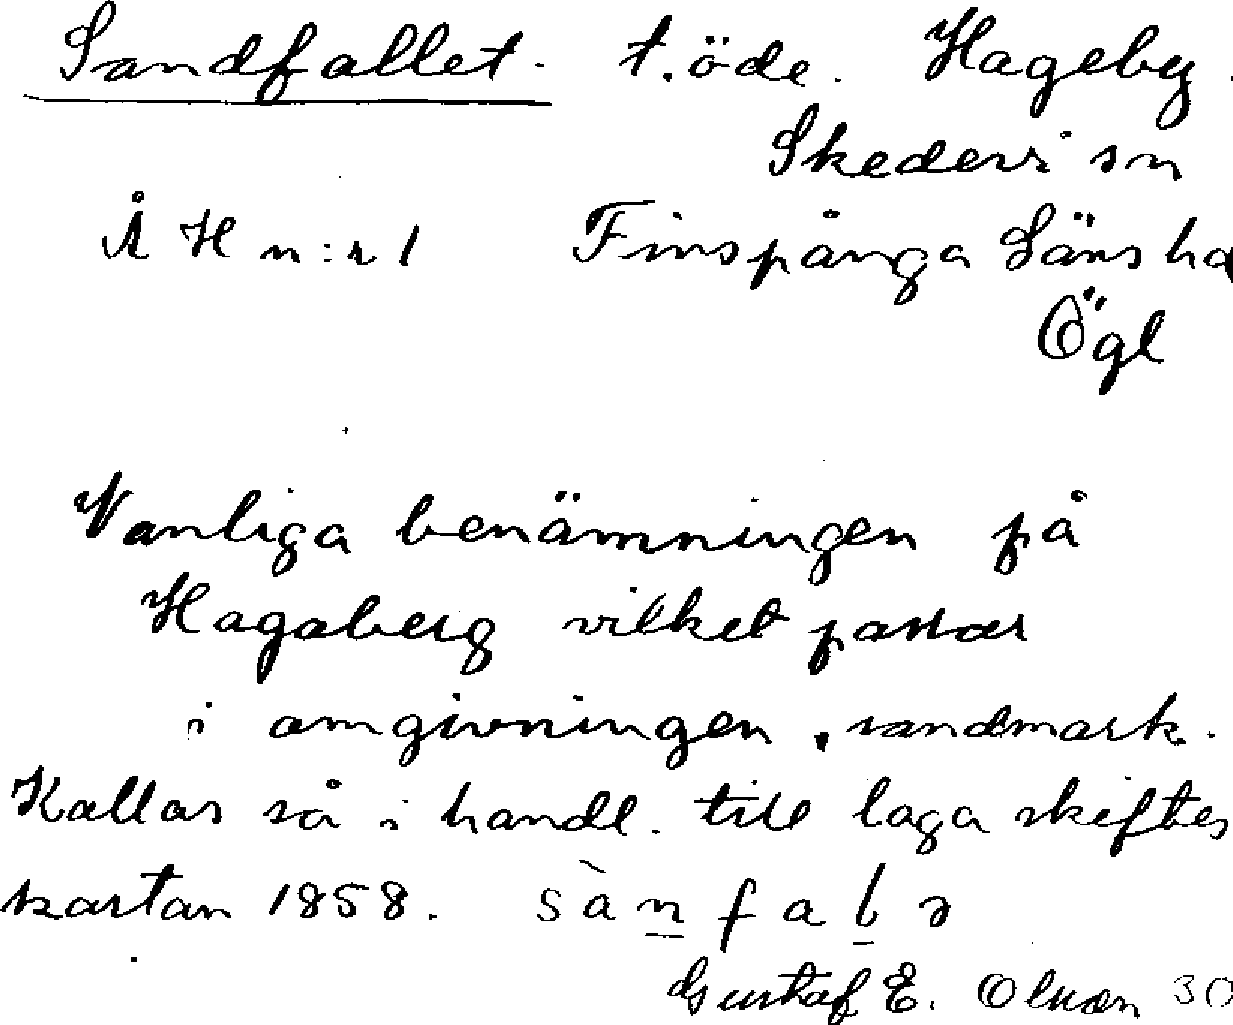 Sandfallet. t.öde. Hageby.
Skedevi sn
Å H n:r 1 Finspånga Läns hd
Ögl
Vanliga benämningen på
Hagaberg vilket passar
i omgivningen, sandmark.
Kallas så i handl. till laga skiftes
kartan 1858. sànfalə
Gustaf E. Olsson 30